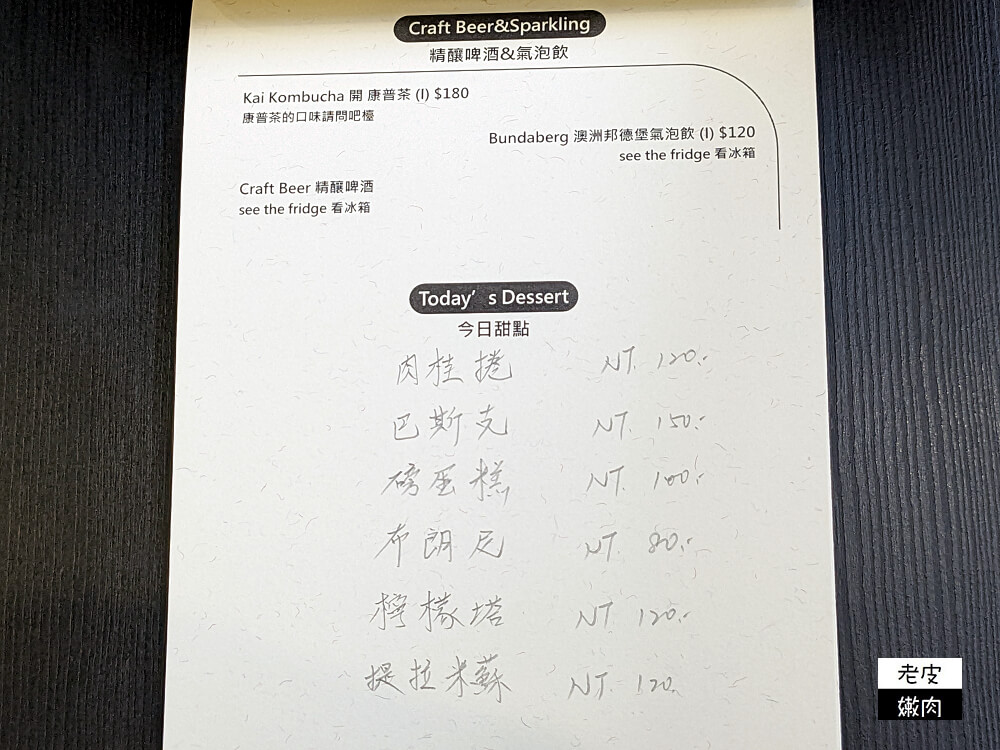 Craft Beer&Sparkling
精釀啤酒&氣泡飲
Kai Kombucha 開 康普茶 (I) $180
康普茶的口味請問吧檯
Bundaberg 澳洲邦德堡氣泡飲 (I) $120
see the fridge 看冰箱
Craft Beer 精釀啤酒
see the fridge 看冰箱
Today's Dessert
今日甜點
肉桂捲 NT. 120.-
巴斯克 NT. 150.-
磅蛋糕 NT. 100.-
布朗尼 NT. 80.-
檸檬塔 NT 120.-
提拉米蘇 NT. 120.
老皮
嫩肉